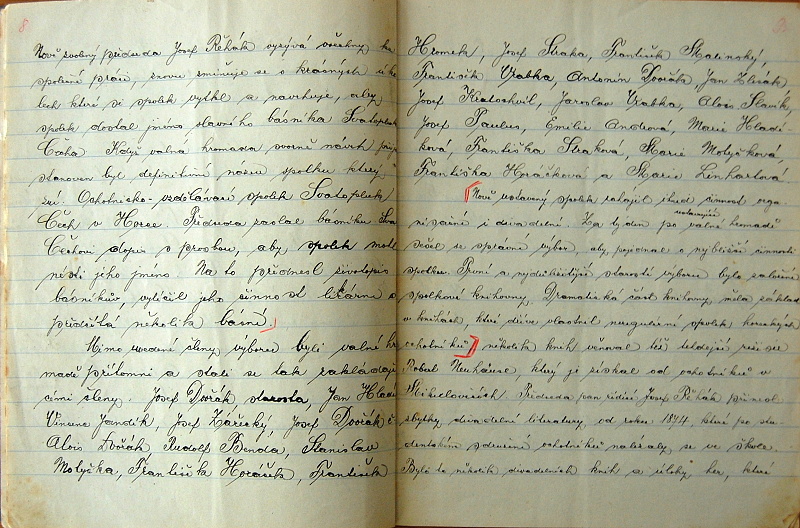 8
Nově zvolený předseda Josef Řehák vyzývá všechny ke
společné práci, znovu zmiňuje se o krásných úko
lech které si spolek vytkl a navrhuje, aby
spolek dostal jméno slavného básníka Svatopluka
Čecha. Když valná hromada svorně návrh přija
stanoven byl definitivní název spolku který
zní: Ochotnicko-vzdělávací spolek Svatopluk
Čech v Horce. Předseda zaslal básníku Sva
Čechovi dopis s prosbou, aby spolek mohl
nésti jeho jméno. Na to přednesl životopis
básníkův, vylíčil jeho činnost literární a
předčítá několik básní.
Mimo uvedené členy výboru byli valné hro
madě přítomni a stali se tak zakládají
cími členy: Josef Dvořák starosta, Jan Hladí
Vincenc Jandík, Josef Zářecký, Josef Dvořák č
Alois Dvořák Rudolf Benda, Stanislav
Motyčka, Františka Horáčka, František
Hromek, Josef Straka, František Malinský,
Františik Vrabka, Antonín Dvořák, Jan
Josef Kratochvil, Jaroslav Vrabka, Alois Slavík,
Josef Paulus, Emilie Andrová, Marie Hladí-
ková, Františka Straková, Marie Motyčková,
Františka Horáčková a Marie Linhartová
Nově ustavený spolek zahájil ihned činnost orga-
nisační i divadelní. Za týden po ustavující valné hromadě
sešel se správní výbor, aby pojednal o nejbližší činnosti
spolku. První a nejdůležitější starostí výboru bylo založení
spolkové knihovny. Dramatická část knihovny, měla základ
v knihách, které dříve vlastnil neregulérní spolek horeckých
ochotníků, několik knih věnoval též tehdejší režisér
Robert Neuhäuse, který je získal od ochotníků v
Mikulovicích. Předseda pan řídící Josef Řehák přinesl
zbytky divadelní literatury, od roku 1874, které po stu
dentském sdružení ochotníků nalézaly se ve škole.
Bylo to několik divadelních knih a úlohy her, které